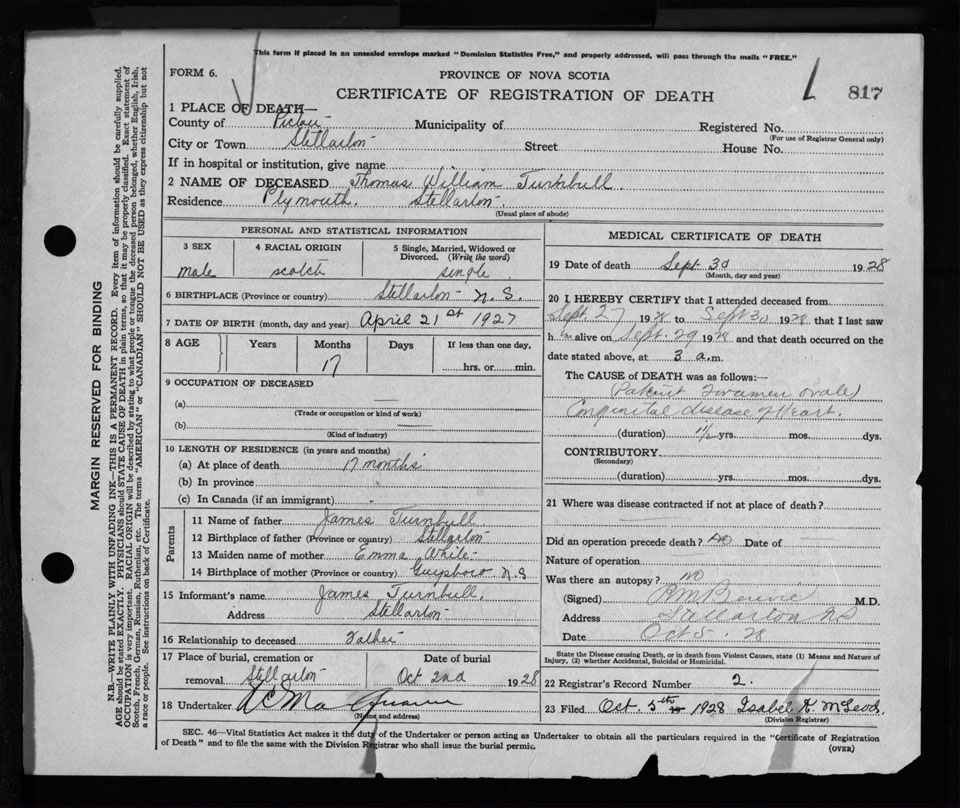 This form if placed in an unsealed envelope marked "Dominion Statistics Free," and properly addressed, will pass through the mails "FREE."
FORM 6.
PROVINCE OF NOVA SCOTIA
CERTIFICATE OF REGISTRATION OF DEATH
817
1 PLACE OF DEATH—
County of Pictou Municipality of Registered No.
(For use of Registrar General only)
City or Town Stellarton Street House No.
If in hospital or institution, give name
2 NAME OF DECEASED Thomas William Turnbull.
Residence Plymouth. Stellarton.
(Usual place of abode)
PERSONAL AND STATISTICAL INFORMATION
3 SEX 4 RACIAL ORIGIN 5 Single, Married, Widowed or Divorced. (Write the word)
male scotch single
6 BIRTHPLACE (Province or country) Stellarton N.S.
7 DATE OF BIRTH (month, day and year) April 21st 1927
8 AGE Years Months Days If less than one day,
17 hrs. or min.
9 OCCUPATION OF DECEASED
(a) —
(Trade or occupation or kind of work)
(b) —
(Kind of industry)
10 LENGTH OF RESIDENCE (in years and months)
(a) At place of death 17 months
(b) In province
(c) In Canada (if an immigrant)
Parents
11 Name of father James Turnbull
12 Birthplace of father (Province or country) Stellarton
13 Maiden name of mother Emma White
14 Birthplace of mother (Province or country) Guysboro N.S
15 Informant's name James Turnbull.
Address Stellarton
16 Relationship to deceased Father
17 Place of burial, cremation or removal Stellarton Date of burial Oct 2nd 1928
18 Undertaker
(Name and address)
MEDICAL CERTIFICATE OF DEATH
19 Date of death Sept 30 1928
(Month, day and year)
20 I HEREBY CERTIFY that I attended deceased from
Sept. 27 1928 to Sept 30 1928 that I last saw
him alive on Sept. 29 1928 and that death occurred on the
date stated above, at 3 a.m.
The CAUSE of DEATH was as follows:—
Patent Foramen Ovale
Congenital disease of Heart.
(duration) 1½ yrs. mos. dys.
CONTRIBUTORY
(Secondary)
(duration) yrs. mos. dys.
21 Where was disease contracted if not at place of death?
Did an operation precede death? no Date of —
Nature of operation
Was there an autopsy? no
(Signed) M.D.
Address Stellarton NS
Date Oct 5. 28
State the Disease causing Death, or in death from Violent Causes, state (1) Means and Nature of
Injury, (2) whether Accidental, Suicidal or Homicidal.
22 Registrar's Record Number 2.
23 Filed Oct. 5th 1928 Isabel K. McLeod.
(Division Registrar)
SEC. 46—Vital Statistics Act makes it the duty of the Undertaker or person acting as Undertaker to obtain all the particulars required in the "Certificate of Registration
of Death" and to file the same with the Division Registrar who shall issue the burial permit.
(OVER)
MARGIN RESERVED FOR BINDING
N.B.—WRITE PLAINLY WITH UNFADING INK—THIS IS A PERMANENT RECORD. Every item of information should be carefully supplied.
AGE should be stated EXACTLY. PHYSICIANS should STATE CAUSE OF DEATH in plain terms, so that it may be properly classified. Exact statement of
OCCUPATION is very important. RACIAL ORIGIN will be described by stating to what people or tongue the deceased person belonged, whether English, Irish,
Scotch, French, German, Russian, Ruthenian, etc. The terms "AMERICAN" or "CANADIAN" SHOULD NOT BE USED as they express citizenship but not
a race or people. See instructions on back of Certificate.